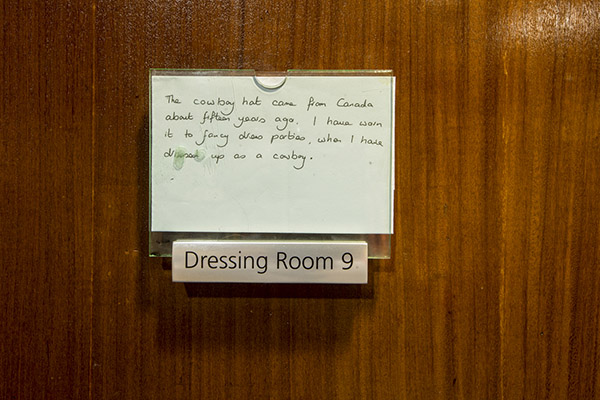 The cowboy hat came from Canada
about fifteen years ago. I have worn
it to fancy dress parties, when I have
dressed up as a cowboy.
Dressing Room 9